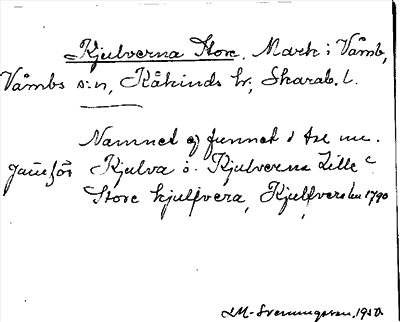 Kjulverna Store. Mark i Våmb,
Våmbs s:n, Kåkinds hr, Skarab. l.
Namnet ej funnet i
Jämför Kjulva o. Kjulverna Lille
Store kjulfvera, Kjulfveræ 1790
LM-Svenungsson, 1950.